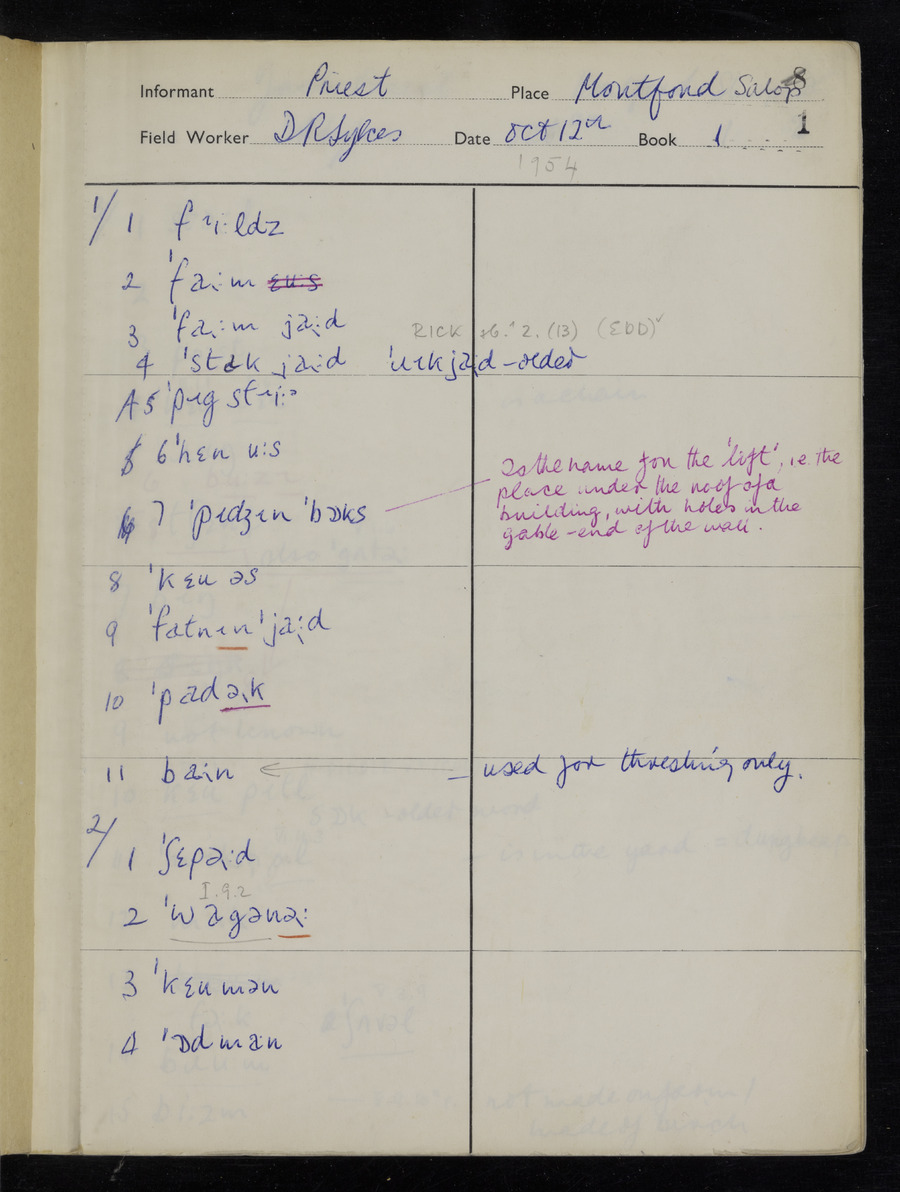 8
Informant Priest Place Montford Salop
1
Field Worker D R Sykes Date Oct 12th Book 1
1954
1/ 1 fɹi:ldz
2 ˈfaɻ:m ɛu:s
3 ˈfaɻ:m jaɻ:d RICK sb.¹ 2. (13) (EDD)
4 ˈstak jaɻ:d ˈɹɪkjaɻd – older
A5 ˈpɪgstɹi:
6 ˈhɛn u:s
7 ˈpɪdʒɪn ˈbɔks
Is the name for the 'lift', i.e. the
place under the roof of a
building, with holes in the
gable-end of the wall.
8 ˈkɛu əs
9 ˈfatnɪn ˈjaɻ:d
10 ˈpadəɻk
11 baɻn – used for threshing only.
2/ 1 ˈʃɛpəɻd
I.9.2
2 ˈwagənəɻ:
3 ˈkɛumən
4 ˈɒdman